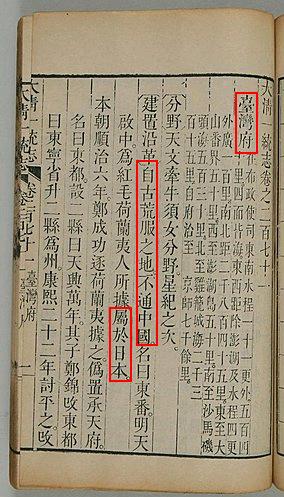 大清一統志卷之二百七十一
臺灣府
在布政使司東南水程
山番界五十里西至澎湖島五十里
頭海五百三十里北至雞籠城海二千三
百十五里自府治至 京師七千餘里。
分野天文牽牛須女分野星紀之次。
建置沿革自古荒服之地不通中國名曰東番明天
啟中為紅毛荷蘭夷人所據屬於日本
本朝順治六年鄭成功逐荷蘭夷據之偽置承天府。
名曰東都設二縣曰天興萬年其子鄭錦改東都
曰東寧省升二縣為州康熙二十二年討平之改
大清一統志 卷二百七十一 臺灣府 一